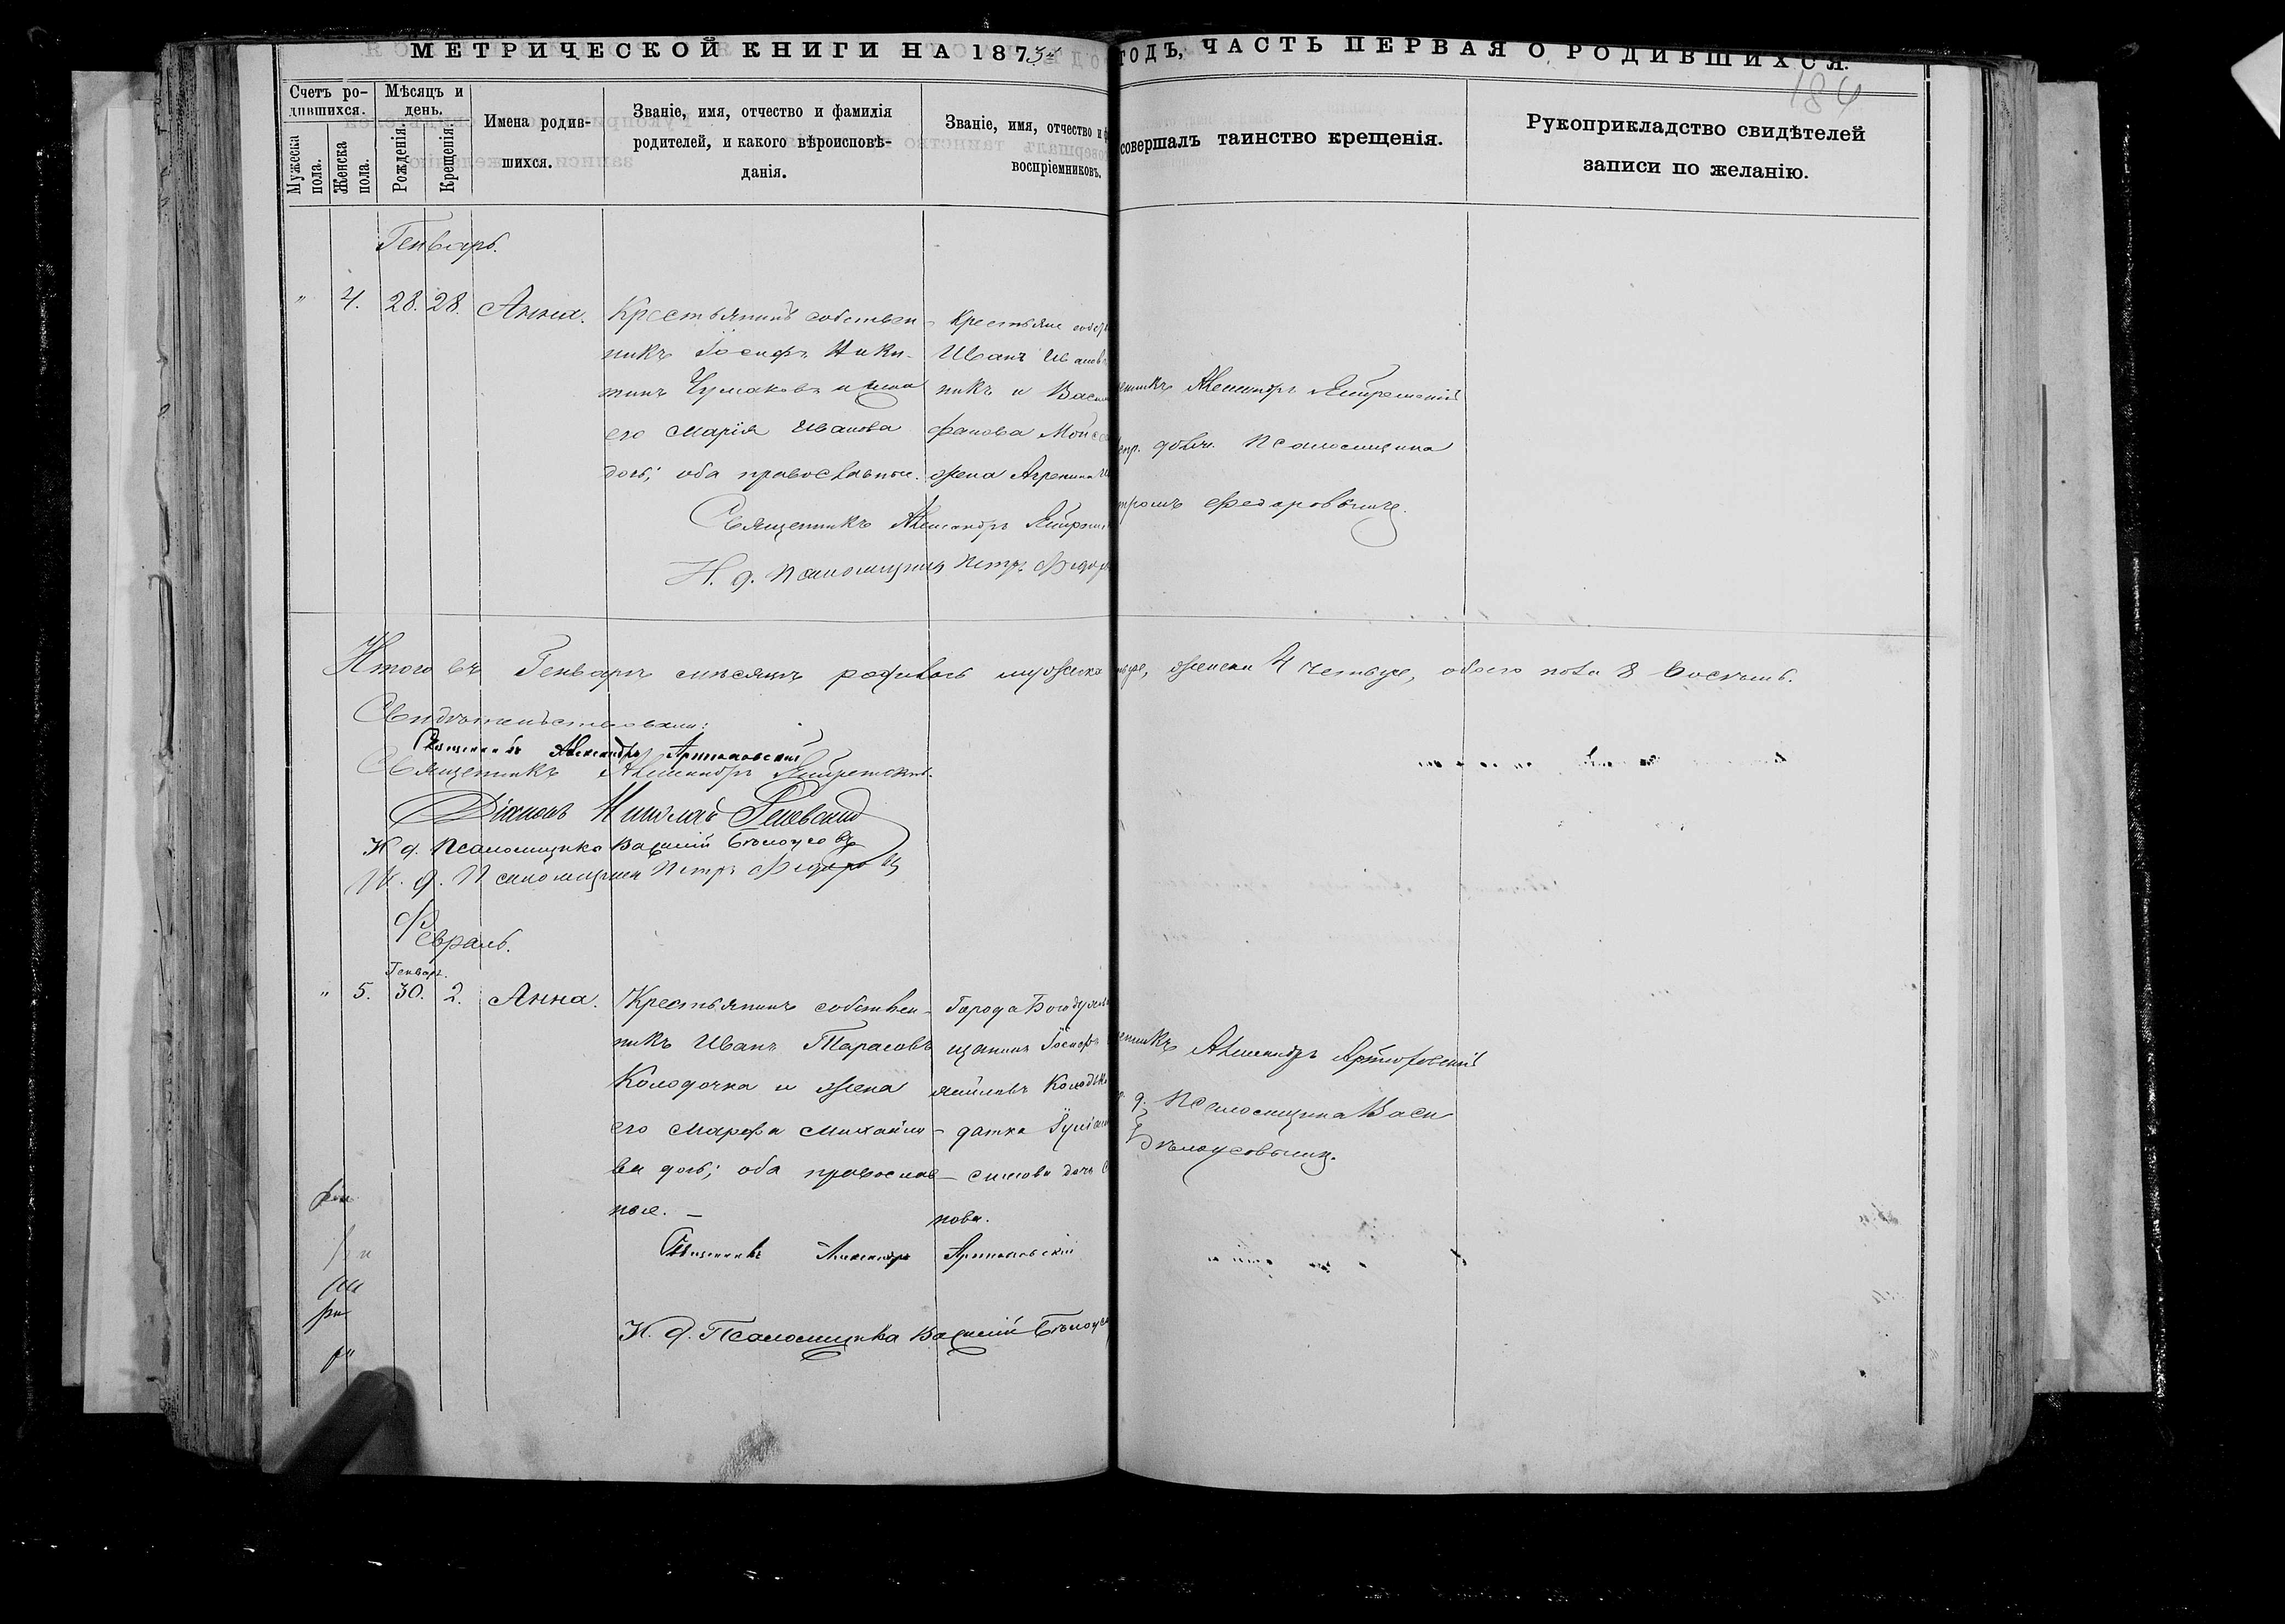 МЕТРИЧЕСКОЙ КНИГИ НА 1873й ГОДЪ, ЧАСТЬ ПЕРВАЯ О РОДИВШИХСЯ.
184
Счетъ ро-
дившихся.
Мужеска пола.
Женска пола.
Мѣсяцъ и
день.
Рожденія.
Крещенія.
Имена родив-
шихся.
Званіе, имя, отчество и фамилія
родителей, и какого вѣроисповѣ-
данія.
Званіе, имя, отчество и
воспріемниковъ.
совершалъ таинство крещенія.
Рукоприкладство свидѣтелей
записи по желанію.
Генварь.
" 4. 28. 28. Анна.
Крестьянинъ собствен-
никъ Іосифъ Ники-
тинъ Чумаковъ и жена
его Марія Иванова
дочь; оба православные.
Крестьяне собст
Иванъ Иванов
никъ и Васи
фанова Мойсе
жена Агрепина
енникъ Александръ
испр. долж. Псаломщика
тромъ Федоровымъ.
Священникъ Александръ
И. д. Псаломщика Петръ Федор
Итого въ Генварѣ мѣсяцѣ родилось мужеска тыре, женска 4 четыре, обоего пола 8 восемь.
Свидѣтельствовали:
Священникъ Александръ Артюховскій
Священникъ Александръ
Діаконъ Николай
И. д. Псаломщика Василій Бѣлоусовъ
И. д. Псаломщика Петръ Федоровъ
Февраль.
Генвар.
" 5. 30. 2. Анна.
Крестьянинъ собствен-
никъ Иванъ Тарасовъ
Колодочка и жена
его Марфа Михайло-
ва дочь; оба православ-
ные. —
Города Богодухов
щанинъ Іосифъ
хайловъ Колод
датка Іуліан
симова дочь
нова.
енникъ Александръ Артюховскій
д. Псаломщика Васи
Бѣлоусовымъ.
Священникъ Александръ Артюховскій
И. д. Псаломщика Василій Бѣлоус